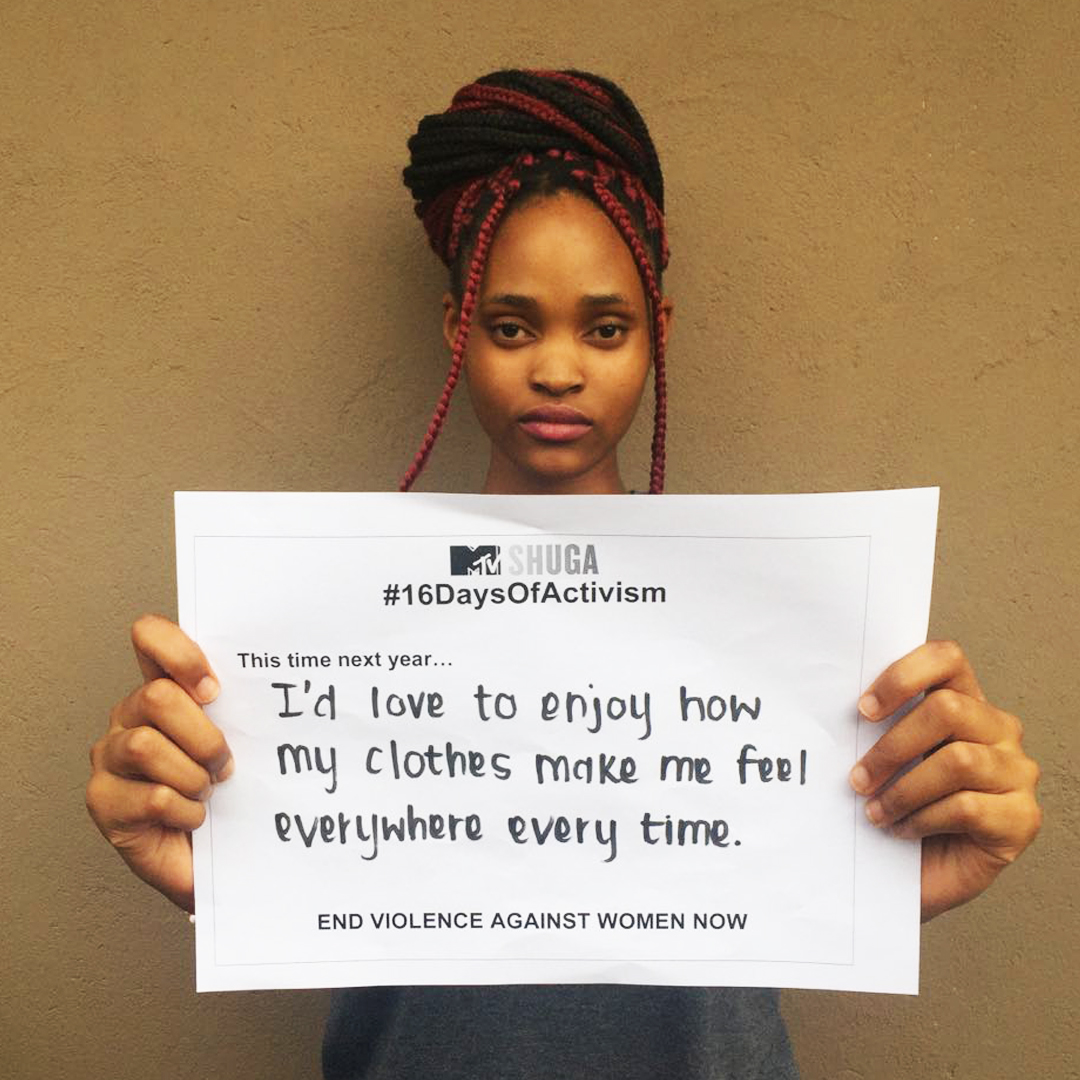 MTV SHUGA
#16DaysOfActivism
This time next year...
I'd love to enjoy how
my clothes make me feel
everywhere every time.
END VIOLENCE AGAINST WOMEN NOW